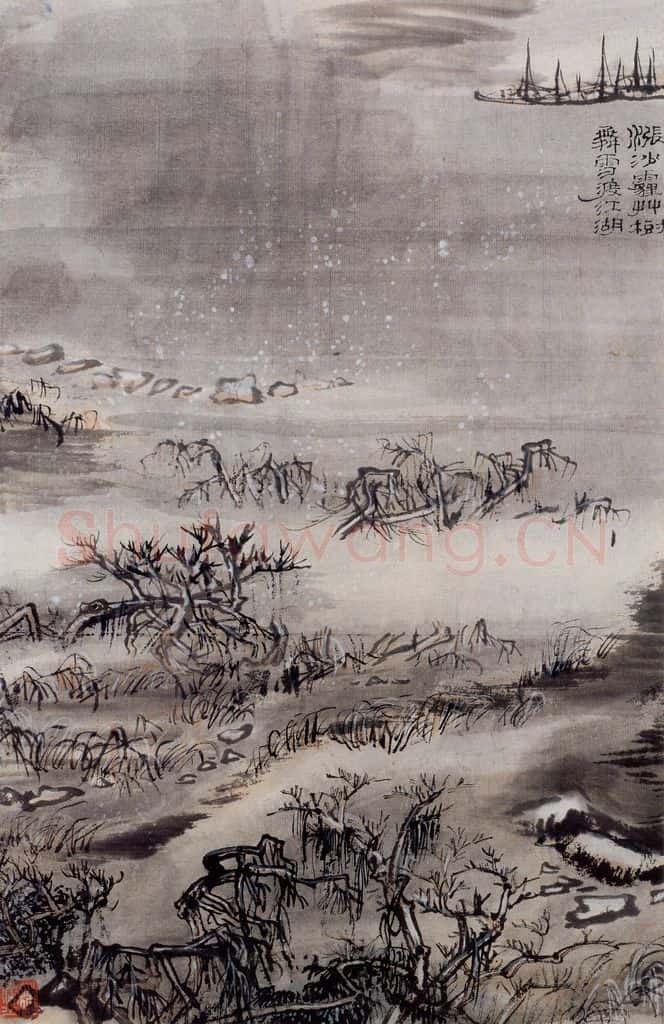 漲沙霾艸樹
舞雪渡江湖
Shufawang.CN